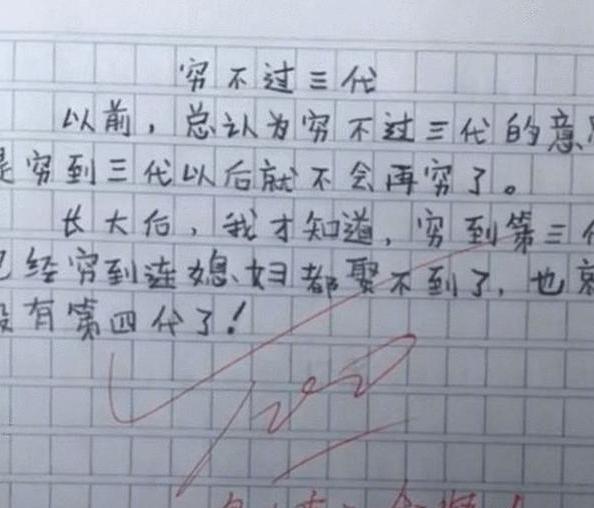 穷不过三代
以前，总认为穷不过三代的意
是穷到三代以后就不会再穷了。
长大后，我才知道，穷到第三代
已经穷到连媳妇都娶不到了，也就
没有第四代了！
100